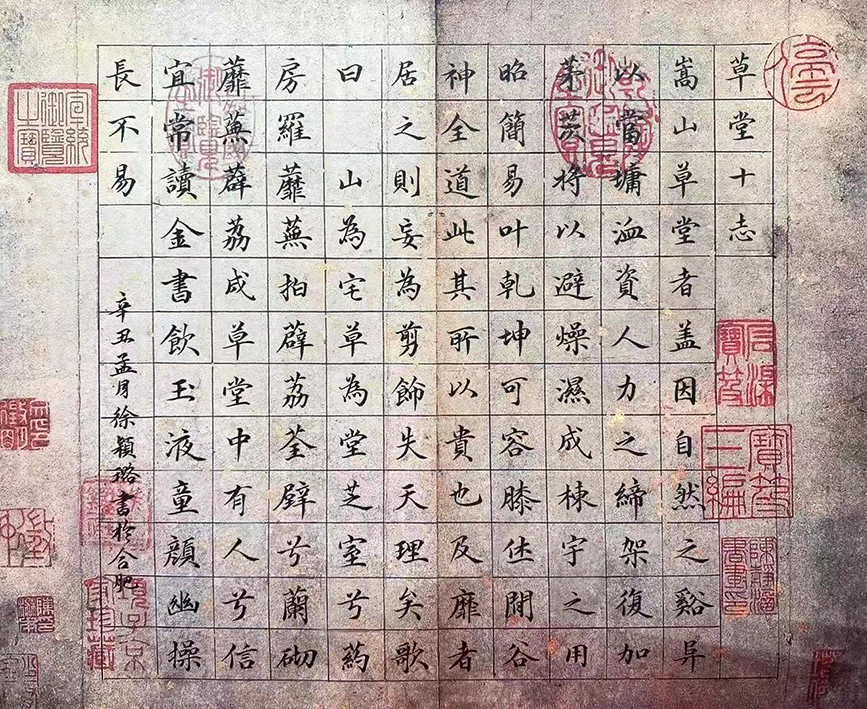 草堂十志
嵩山草堂者盖因自然之谿异
以當墉洫資人力之締架復加
茅茨将以避燥濕成棟宇之用
昭簡易叶乹坤可容膝休閒谷
神全道此其所以貴也及靡者
居之則妄為剪飾失天理矣歌
曰 山為宅草為堂芝室兮葯
房羅蘼蕪拍薜荔荃壁兮蘭砌
蘼蕪薜荔成草堂中有人兮信
宜常讀金書飲玉液童顔幽操
長不易
辛丑孟月徐穎璐書於合肥
石渠寶笈
寶笈三編
宣統御覽之寶
項子京家珍藏